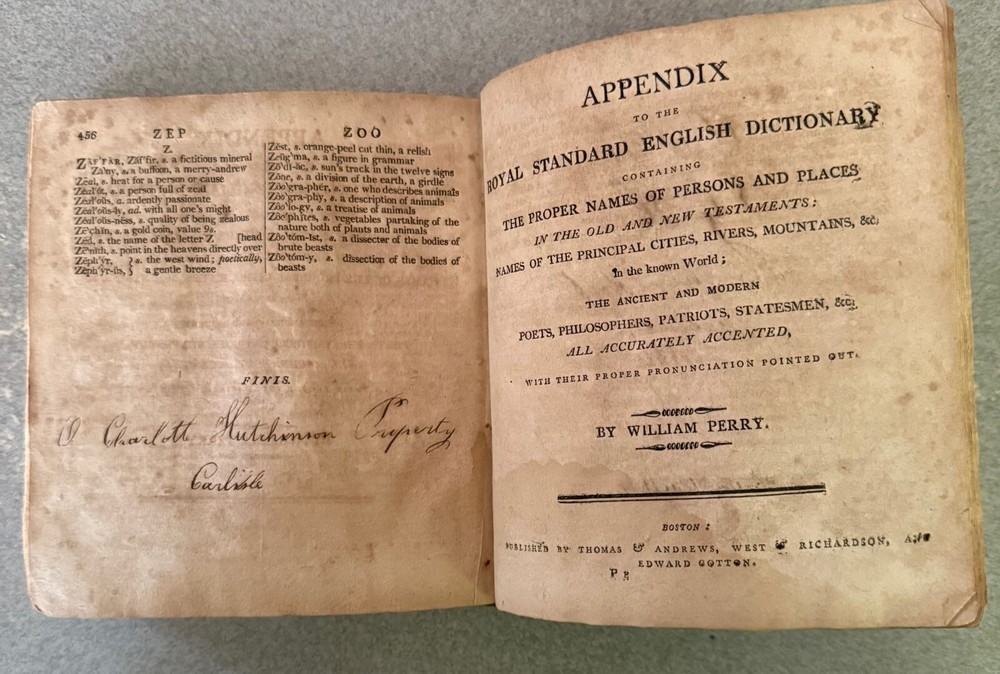 456 ZEP ZOO
Z.
ZAF'FAR, Zăf'fir, s. a fictitious mineral
Zā'ny, s. a buffoon, a merry-andrew
Zēal, s. heat for a person or cause
Zĕal'ŏt, s. a person full of zeal
Zĕal'ŏŭs, a. ardently passionate
Zĕal'ŏŭs-ly, ad. with all one's might
Zĕal'ŏŭs-nĕss, s. quality of being zealous
Zē'chĭn, s. a gold coin, value 9s.
Zĕd, s. the name of the letter Z [head
Zē'nĭth, s. point in the heavens directly over
Zĕph'ўr, } s. the west wind; poetically,
Zĕph'ўr-ŭs, } a gentle breeze
Zĕst, s. orange-peel cut thin, a relish
Zeūg'ma, s. a figure in grammar
Zō'dĭ-ăc, s. sun's track in the twelve signs
Zōne, s. a division of the earth, a girdle
Zōo'gra-phĕr, s. one who describes animals
Zōo'gra-phy, s. a description of animals
Zōo'lo-gy, s. a treatise of animals
Zōo'phītes, s. vegetables partaking of the
nature both of plants and animals
Zōo'tŏm-ĭst, s. a dissecter of the bodies of
brute beasts
Zōo'tŏm-y, s. dissection of the bodies of
beasts
FINIS.
Charlott Hutchinson Property
Carlisle
APPENDIX
TO THE
ROYAL STANDARD ENGLISH DICTIONARY
CONTAINING
THE PROPER NAMES OF PERSONS AND PLACES
IN THE OLD AND NEW TESTAMENTS:
NAMES OF THE PRINCIPAL CITIES, RIVERS, MOUNTAINS, &c.
In the known World;
THE ANCIENT AND MODERN
POETS, PHILOSOPHERS, PATRIOTS, STATESMEN, &c.
ALL ACCURATELY ACCENTED,
WITH THEIR PROPER PRONUNCIATION POINTED OUT.
BY WILLIAM PERRY.
BOSTON:
PUBLISHED BY THOMAS & ANDREWS, WEST & RICHARDSON,
EDWARD COTTON.